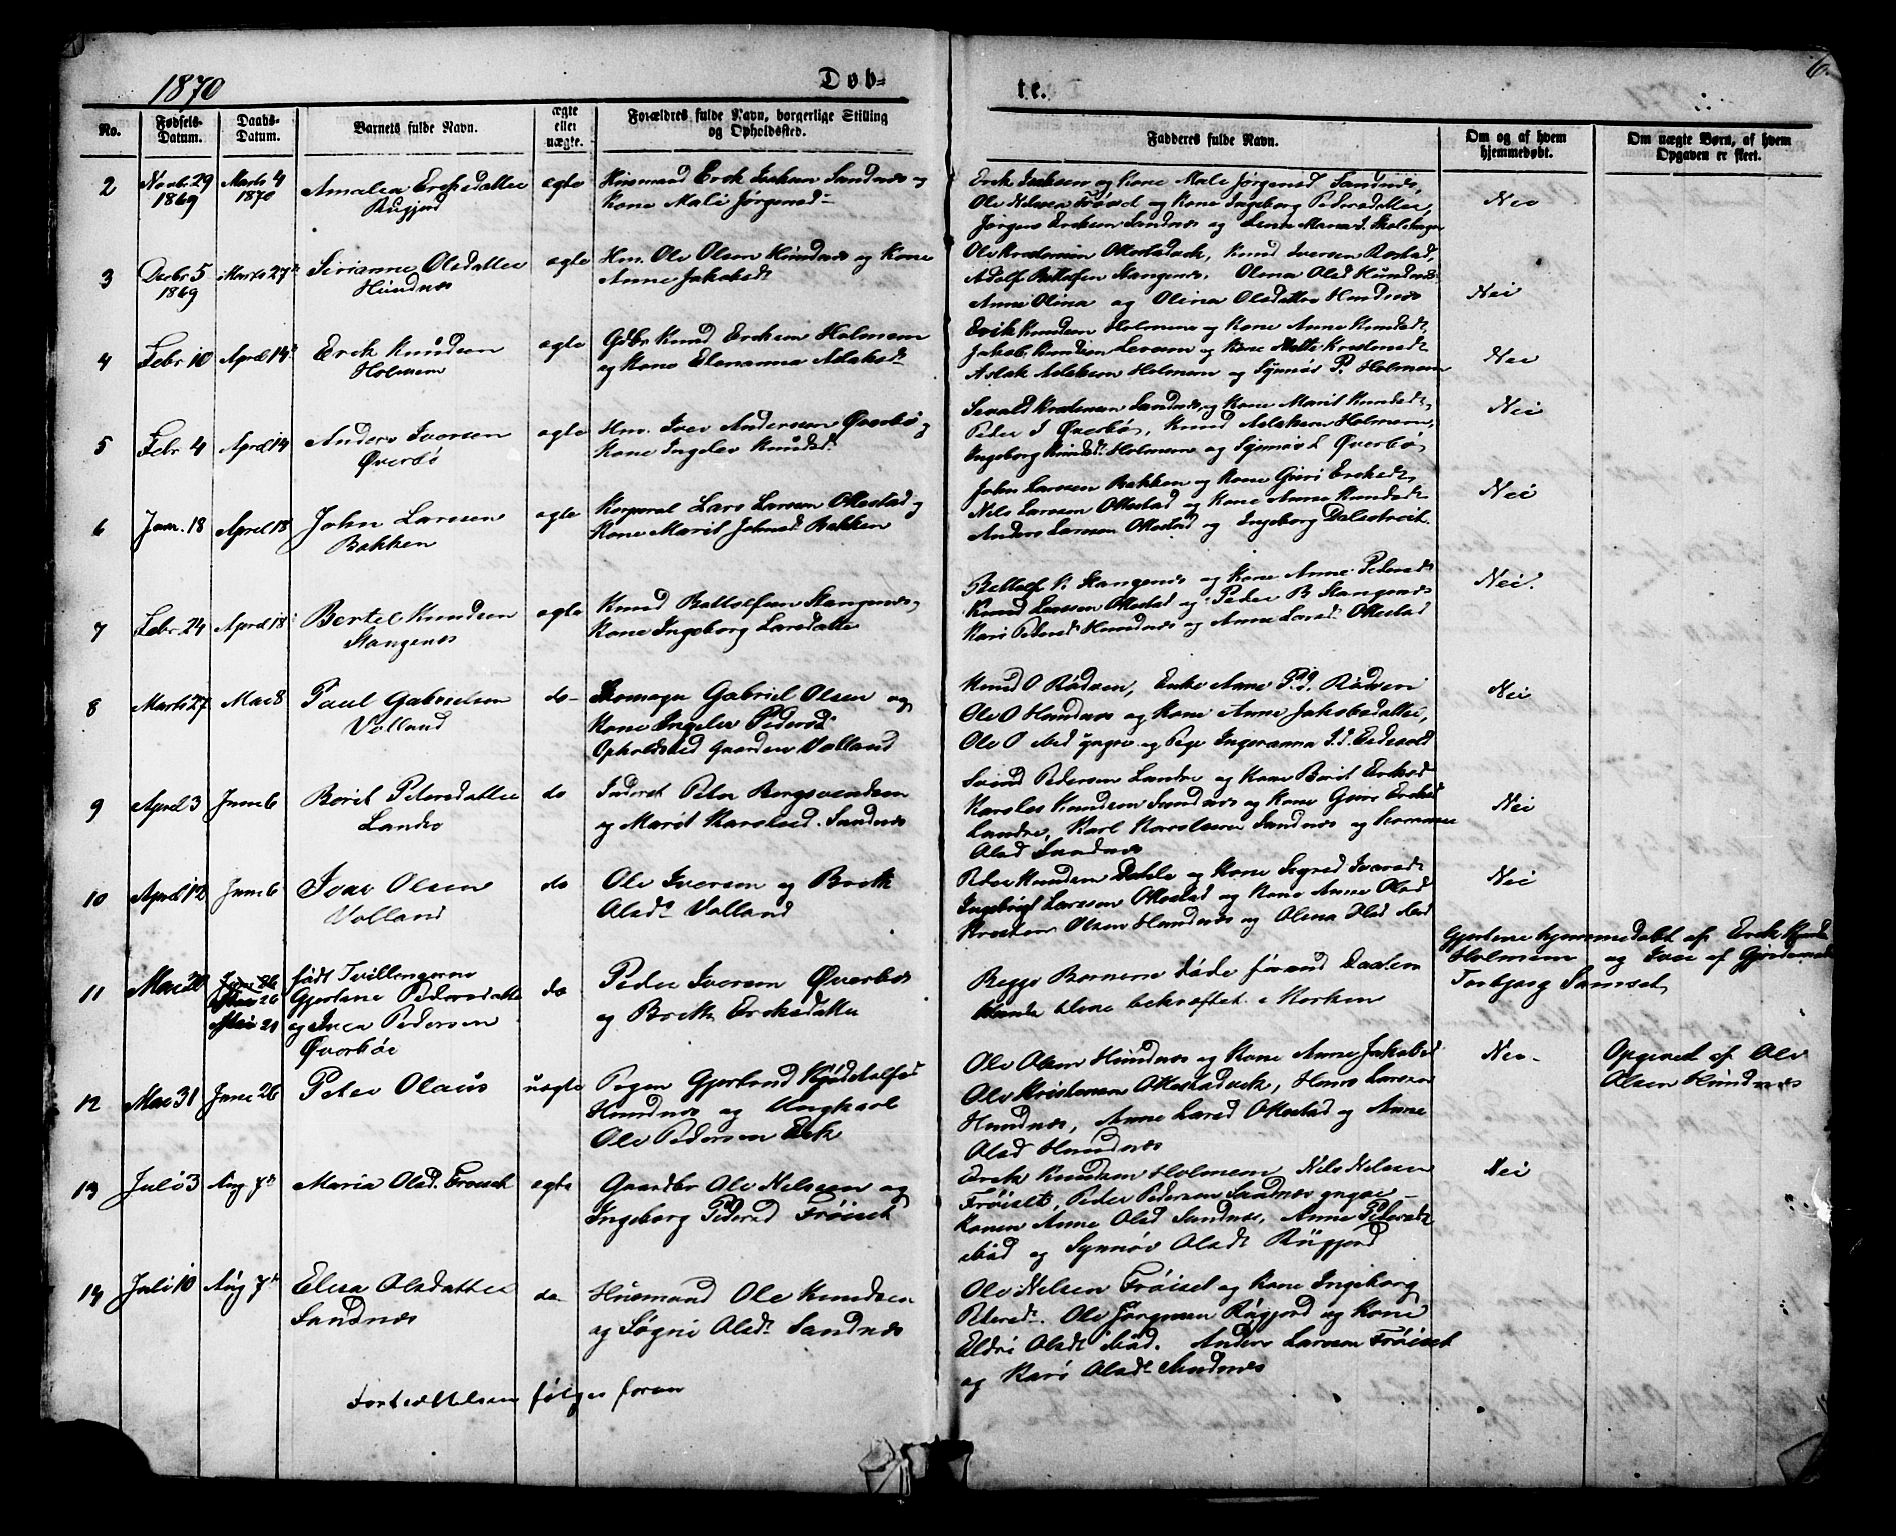 1870
Døb-
te.
6.
No.
Fødsels-
Datum.
Daabs-
Datum.
Barnets fulde Navn.
ægte
eller
uægte.
Forældres fulde Navn, borgerlige Stilling
og Opholdssted.
Fadderes fulde Navn.
Om og af hvem
hjemmedøbt.
Om uægte Børn, af hvem
Opgaven er skeet.
2
Novbr 29
1869
Marts 4
1870
Amalia Ericksdatter
Rugjord
ægte
Husmand Erik Sandnæs og
Kone Mali Jørgensd
Erik og Kone Mali Jørgensd Sandnæs,
Ole Nilsen Frøiset og Kone Ingeborg Pedersdatter,
Jørgen Ericksen Sandnæs og
Nei
3
Decbr 5
1869
Marts 27
Serianne Olsdatter
Hundnæs
ægte
Hm. Ole Olsen Hundnæs og Kone
Anne Jakobsdt
Ole Kristensen Ottestadvik, Knud Iversen
Adolf Bottolfsen Stangenæs, Olena Olsd Hundnæs
Anne Olina og Olina Olsdatter Hundnæs
Nei
4
Febr 10
April 14
Erik Knudsen
Holmem
ægte
Gdbr Knud Ericksen Holmem
og Kone Elenanna Aslaksdt
Erik Knudsen Holmem og Kone Anne Knudsdt,
Jakob Knudsen og Kone Mette Kristensdt
Aslak Aslaksen Holmem og Synnøv P. Holmem
Nei
5
Febr 4
April 14
Anders Iversen
Øverbø
ægte
Hm. Iver Andersson Øverbø og
Kone Ingelev Knudsdt
Sevald Kristensen Sandnæs og Kone Marit Knudsdt,
Peder I Øverbø, Knud Aslaksen Holmem,
Ingeborg Knudsdt Holmem og Synnøv I Øverbø
Nei
6
Jan. 18
April 18
John Larssen
Bakken
ægte
Korporal Lars Larssen Ottestad og
Kone Marit Johnsd Bakken
John Larssen Bakken og Kone Guri Ericksdt,
Nils Larsson Ottestad og Kone Anne Knudsdt
Anders Larssen Ottestad og Ingeborg
Nei
7
Febr. 24
April 18
Bertel Knudsen
Stangenæs
ægte
Knud Bottolfsen Stangenæs og
Kone Ingeborg Larsdatter
Bottolf K. Stangenæs og Kone Anne Pedersdt
Knud Larssen Ottestad og Peder B Stangenæs
Kari Pedersdt Hundnæs og Anne Larsdt Ottestad
Nei.
8
Marts 27
Mai 8
Paul Gabrielsen
Volland
do
Skomager Gabriel Olsen og
Kone Ingelev Pedersdt
Opholdsted Gaarden Volland
Knud O Rødven, Enke Anne P.d. Rødven
Ole O Hundnæs og Kone Anne Jakobsdatter,
Ole O yngre og Pige Ingeranna I.d.
Nei
9
April 3
Juni 6
Borit Petersdatter
Landro
do
Inderst Peter Bergsvendsen
og Marit Karolsd. Sandnæs
Svend Pedersen Landro og Kone Borit Ericksd
Karolus Knudsen Sandnæs og Kone Guri Ericksd
Landro, Karl Karolusen Sandnæs og
Olsd Sandnæs
Nei
10
April 12
Juni 6
Iver Olsen
Volland
do
Ole Iversen og Brith
Olsdt Volland
Peder Knudsen Dahle og Kone Sigrid Ivarsdt
Ingebrigt Larssen Ottestad og Kone Anne Olsd
Kristen Olsen Hundnæs og Olena Olsd
Nei
11
Mai 20
født Tvillingerne
Gjertine Pedersdatter
og Iver Pedersen
Øverbøe
do
Peder Iversen Øverbø
og Brith Ericksdatter
Begge Børnene døde førend Daaben
kunde blive bekræftet i Kirken
Gjertine hjemmedøbt af Erik Knuds
Holmem og Iver af Gjordemoder
Torbjørg Samset
12
Mai 31
Juni 26
Peter Olaus
uægte
Pigen Gjertrud
Hundnæs og Ungkarl
Ole Pedersen Eik
Ole Olsen Hundnæs og Kone Anne Jakobsd
Ole Kristensen Ottestadvik, Hans Larsen
Hundnæs, Anne Larsd Ottestad og Anne
Olsd Hundnæs
Nei
Opgivet af Ole
Olsen Hundnæs
13
Juli 3
Aug 7
Maria Olsd. Frøiset
ægte
Gaardbr Ole Nilssen og
Ingeborg Pedersd Frøiset
Erik Knudsen Holmem, Nils Nilssen
Frøiset, Peder Pedersen Sandnæs yngre
Konen Anne Olsd Sandnæs, Anne Pedersdt
og Synnøv Olsdt Rugjord
Nei
14
Juli 10
Aug 7
Elisa Olsdatter
Sandnæs
do
Husmand Ole Knudsen
og Søgni Olsdt Sandnæs
Ole Nilsen Frøiset og Kone Ingeborg
Pedersdt. Ole Jørgensen Rugjord og Kone
Eldri Olsdt. Anders Larssen Frøiset
og Kari Olsdt Sandnæs
Fortsættelsen følger foran